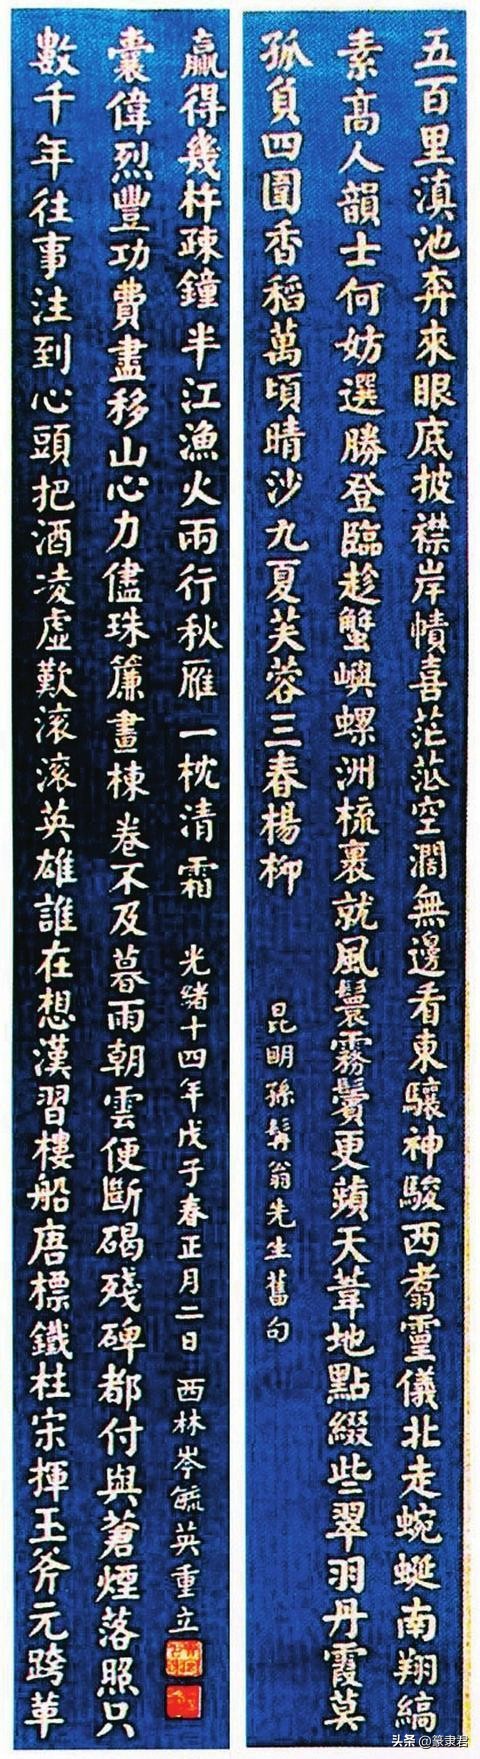 五百里滇池奔來眼底披襟岸幘喜茫茫空濶無邊看東驤神駿西翥靈儀北走蜿蜒南翔縞
素高人韻士何妨選勝登臨趁蟹嶼螺洲梳裹就風鬟霧鬢更蘋天葦地點綴些翠羽丹霞莫
孤負四圍香稻萬頃晴沙九夏芙蓉三春楊柳
昆明孫髯翁先生舊句
數千年往事注到心頭把酒凌虛歎滚滚英雄誰在想漢習樓船唐標鐵柱宋揮玉斧元跨革
囊偉烈豐功費盡移山心力儘珠簾畫棟卷不及暮雨朝雲便斷碣殘碑都付與蒼煙落照只
贏得幾杵疎鐘半江漁火兩行秋雁一枕清霜
光緒十四年戊子春正月二日 西林岑毓英重立
头条 @篆隶君